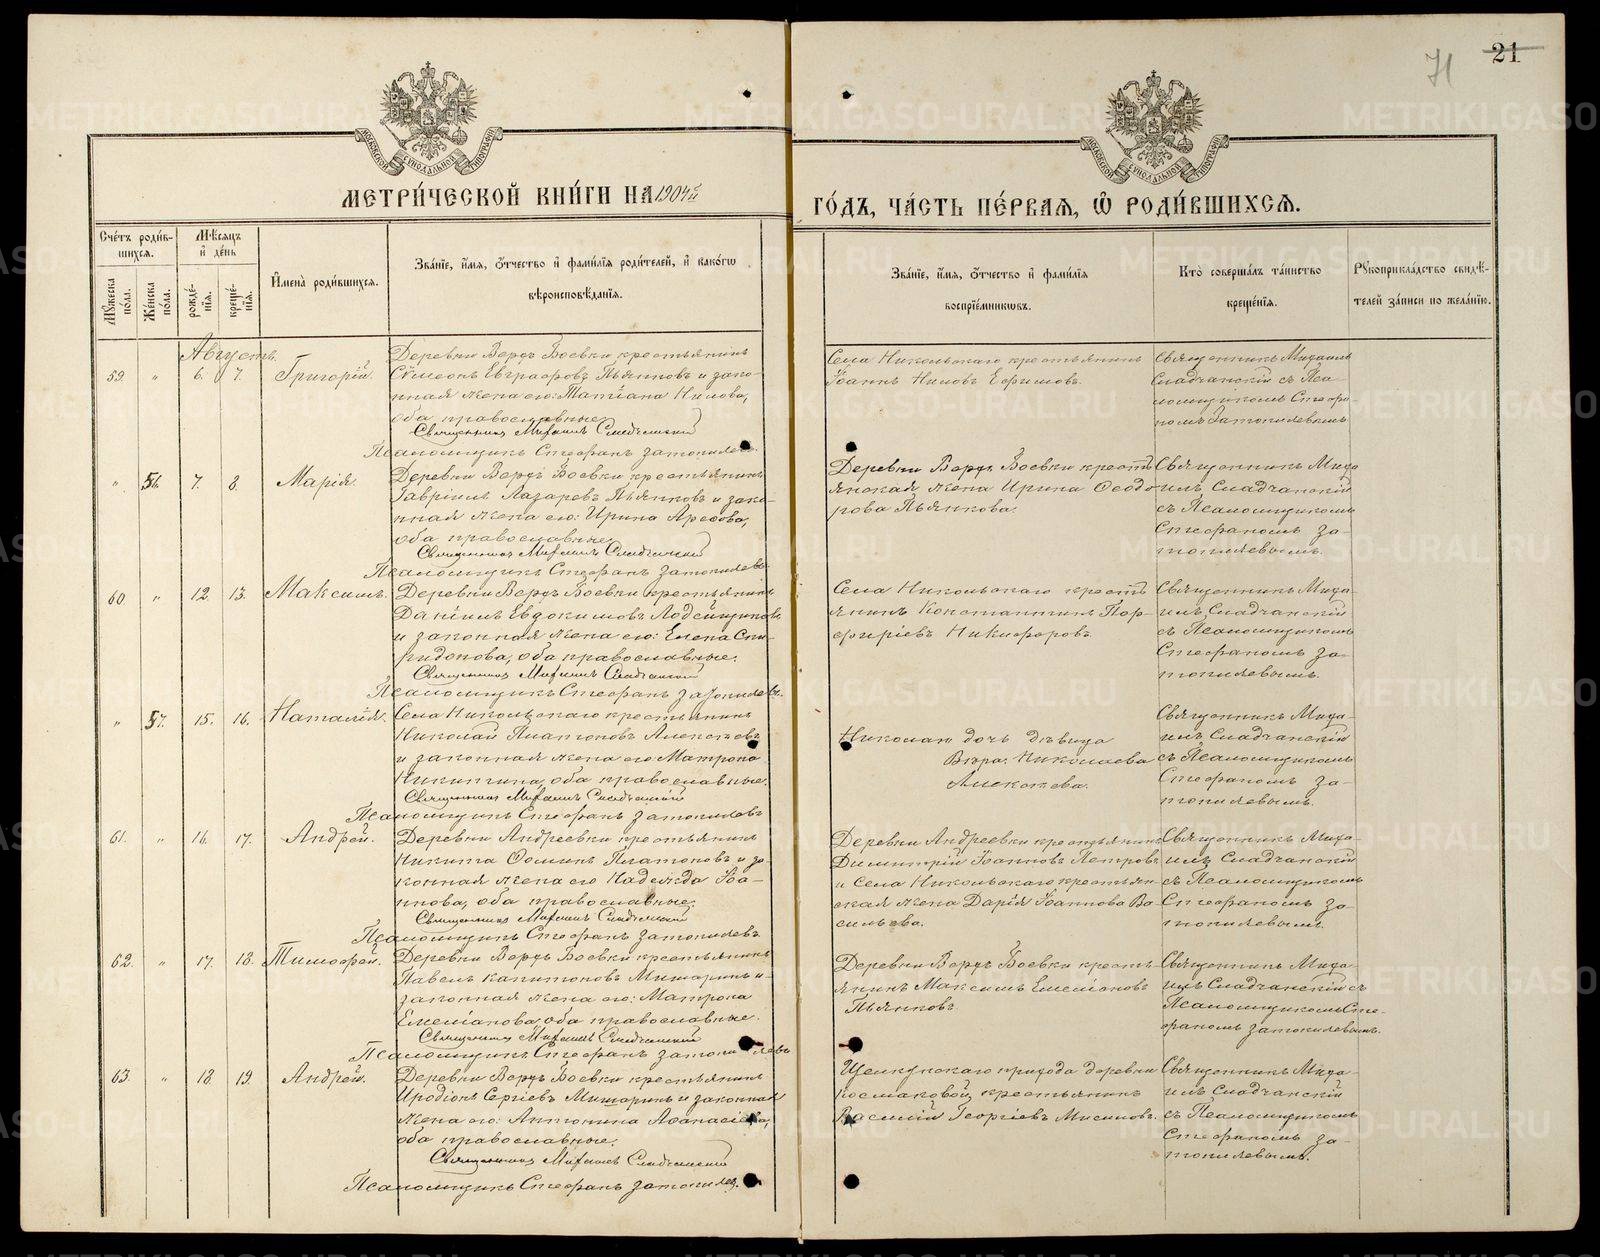 71
21
МЕТРИ́ЧЕСКОЙ КНИ́ГИ НА 1904й
ГО́ДЪ, ЧА́СТЬ ПЕ́РВАЯ, Ѡ РОДИ́ВШИХСЯ.
Сче́тъ роди́в-
шихся.
Му́жеска по́ла.
Же́нска по́ла.
Мѣсяцъ
и де́нь
рожде́-
нія.
креще́-
нія.
Имена̀ роди́вшихся.
Зва́ніе, и́мя, о́тчество и фами́лія роди́телей, и како́гѡ
вѣроисповѣ́данія.
Зва́ніе, и́мя, о́тчество и фами́лія
воспріе́мникѡвъ.
Кто̀ соверша́лъ та́инство
креще́нія.
Рукоприкла́дство свидѣ́-
телей за́писи по жела́нію.
Августъ.
59. " 6. 7. Григорій.
Деревни Верхъ Боевки крестьянинъ
Сѵмеонъ Евграфовъ Пьянковъ и зако-
нная жена его: Татіана Нилова,
оба православные.
Священникъ Михаилъ Сладчанский
Псаломщикъ Стефанъ Затопляевъ.
Села Никольскаго крестьянинъ
Іоаннъ Ниловъ Ефимовъ.
Священникъ Михаилъ
Сладчанскій съ Пса-
ломщикомъ Стефа-
номъ Затопляевымъ
" 56. 7. 8. Марія.
Деревни Верхъ Боевки крестьянинъ
Гавріилъ Лазаревъ Пьянковъ и зако-
нная жена его: Ирина Арефова,
оба православные.
Священникъ Михаилъ Сладчанский
Псаломщикъ Стефанъ Затопляевъ
Деревни Верхъ Боевки кресть
янская жена Ирина Феодо-
рова Пьянкова.
Священникъ Миха
илъ Сладчанскій
съ Псаломщикомъ
Стефаномъ За-
топляевымъ.
60. " 12. 13. Максимъ.
Деревни Верхъ Боевки крестьянинъ
Даніилъ Евдокимовъ Лодейщиковъ
и законная жена его: Елена Спи-
ридонова, оба православные.
Священникъ Михаилъ Сладчанский
Псаломщикъ Стефанъ Затопляевъ.
Села Никольскаго кресть
янинъ Константинъ Пор-
фиріевъ Никифоровъ.
Священникъ Миха-
илъ Сладчанскій
съ Псаломщикомъ
Стефаномъ За-
топляевымъ.
" 57. 15. 16. Наталія.
Села Никольскаго крестьянинъ
Николай Платоновъ Алексѣевъ
и законная жена его Матрона
Никитина, оба православные.
Священникъ Михаилъ Сладчанский
Псаломщикъ Стефанъ Затопляевъ
Николая дочь дѣвица
Вѣра Николаева
Алексѣева.
Священникъ Миха-
илъ Сладчанскій
съ Псаломщикомъ
Стефаномъ За-
топляевымъ.
61. " 16. 17. Андрей.
Деревни Андреевки крестьянинъ
Никита Фоминъ Платоновъ и за-
конная жена его Надежда Іоа-
ннова, оба православные.
Священникъ Михаилъ Сладчанский
Псаломщикъ Стефанъ Затопляевъ
Деревни Андреевки крестьянинъ
Димитрій Іоанновъ Петровъ
и Села Никольскаго крестьян-
ская жена Дарія Іоаннова Ва-
сильева.
Священникъ Миха-
илъ Сладчанскій
съ Псаломщикомъ
Стефаномъ За-
топляевымъ.
62. " 17. 18. Тимофей.
Деревни Верхъ Боевки крестьянинъ
Павелъ Капитоновъ Мишаринъ и
законная жена его: Матрона
Емеліанова, оба православные.
Священникъ Михаилъ Сладчанский
Псаломщикъ Стефанъ Затопляевъ
Деревни Верхъ Боевки кресть-
янинъ Максимъ Емеліановъ
Пьянковъ.
Священникъ Миха-
илъ Сладчанскій съ
Псаломщикомъ Сте-
фаномъ Затопляевымъ.
63. " 18. 19. Андрей.
Деревни Верхъ Боевки крестьянинъ
Иродіонъ Сергіевъ Мишаринъ и законная
жена его: Антонина Афанасіева,
оба православные.
Священникъ Михаилъ Сладчанский
Псаломщикъ Стефанъ Затопляевъ.
Щелкунскаго прихода деревни
Космаковой крестьянинъ
Василій Георгіевъ
Священникъ Миха-
илъ Сладчанскій
съ Псаломщикомъ
Стефаномъ За-
топляевымъ.
METRIKI.GASO-URAL.RU